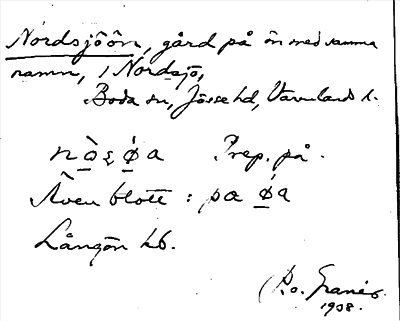 Nordsjöön, gård på ön med samma
namn, i Nordsjö,
Boda sn, Jösse hd, Värmlands l.
nò̱ʂǿ̱a Prep. på.
Även blott : pa ǿ̱a
Långön hb.
Ro. Granér.
1908.